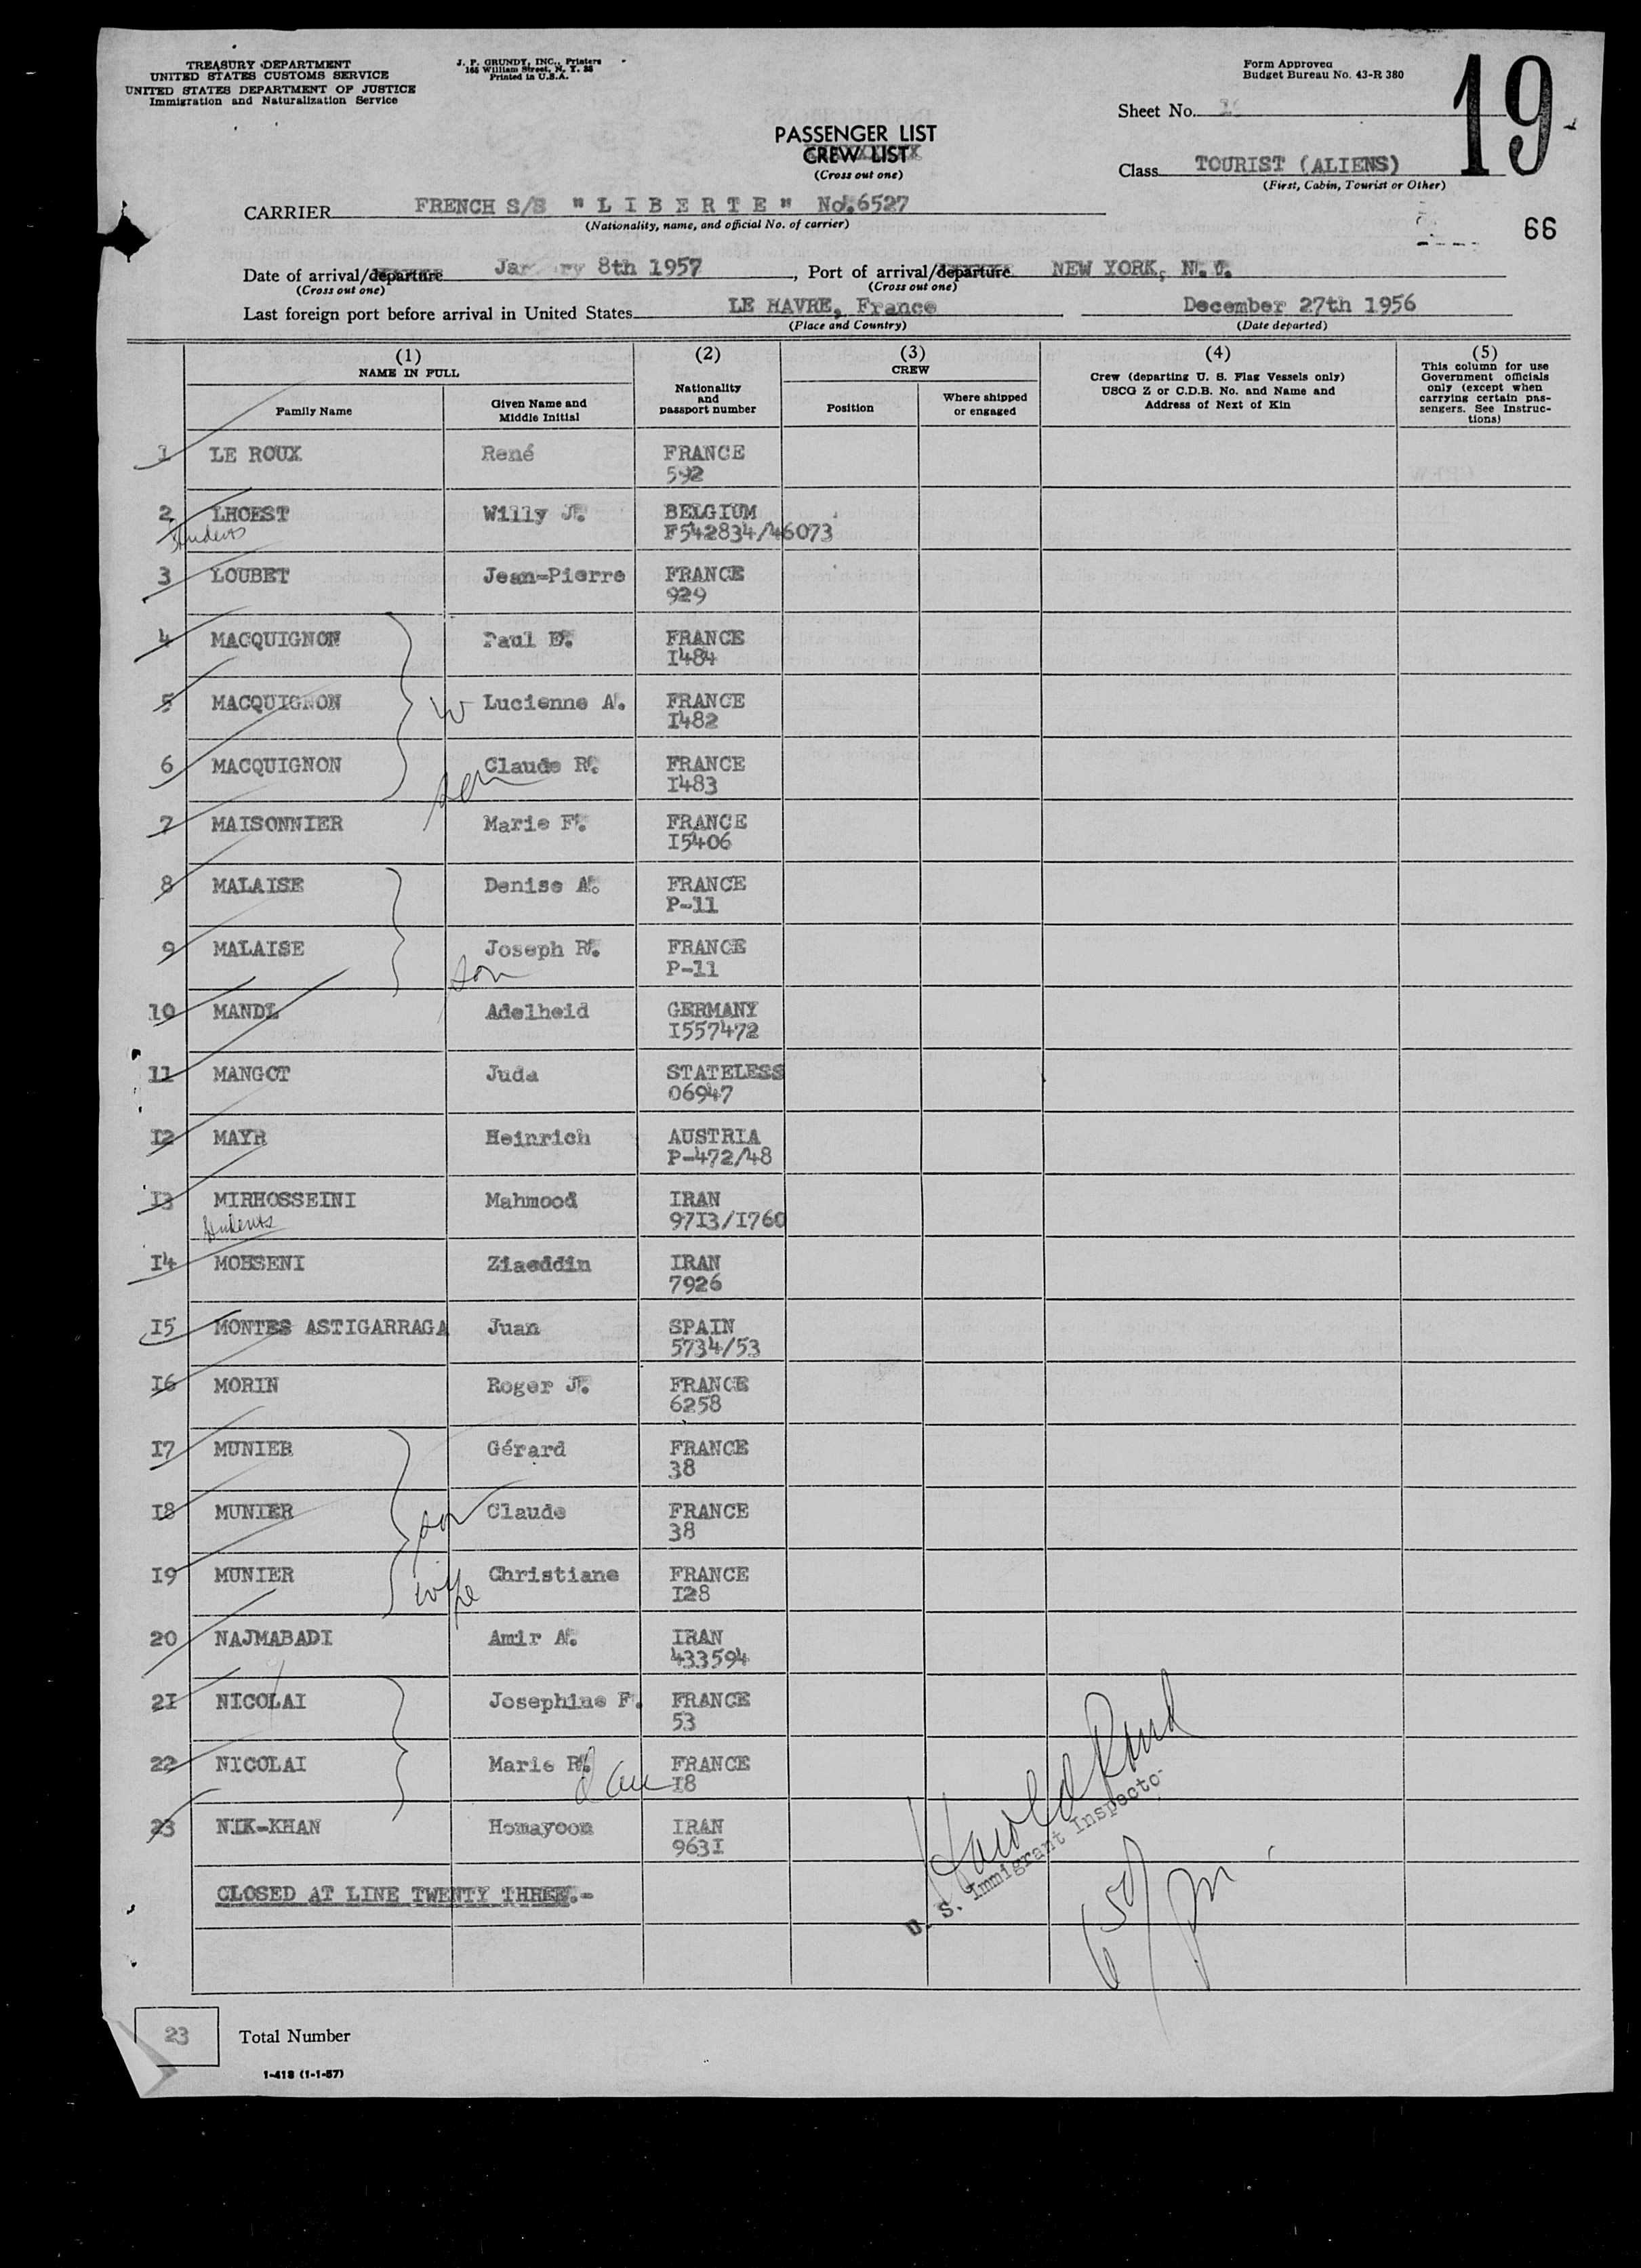 TREASURY DEPARTMENT
UNITED STATES CUSTOMS SERVICE
UNITED STATES DEPARTMENT OF JUSTICE
Immigration and Naturalization Service
J. P. GRUNDY, INC., Printers
165 William Street, N. Y. 38
Printed in U.S.A.
Form Approved
Budget Bureau No. 43-R 380
Sheet No.
19
PASSENGER LIST
CREW LIST
(Cross out one)
Class TOURIST (ALIENS)
(First, Cabin, Tourist or Other)
CARRIER FRENCH S/S "LIBERTE" No.6527
(Nationality, name, and official No. of carrier)
66
Date of arrival/departure 8th 1957, Port of arrival/departure NEW YORK, N.Y.
(Cross out one) (Cross out one)
Last foreign port before arrival in United States LE HAVRE, France December 27th 1956
(Place and Country) (Date departed)
(1) NAME IN FULL
Family Name
Given Name and Middle Initial
(2)
Nationality and passport number
(3) CREW
Position
Where shipped or engaged
(4)
Crew (departing U. S. Flag Vessels only)
USCG Z or C.D.B. No. and Name and
Address of Next of Kin
(5)
This column for use
Government officials
only (except when
carrying certain pas-
sengers. See Instruc-
tions)
1 LE ROUX René FRANCE
592
2 LHOEST Willy J. BELGIUM
Students F542834/46073
3 LOUBET Jean-Pierre FRANCE
929
4 MACQUIGNON Paul E. FRANCE
I484
5 MACQUIGNON W Lucienne A. FRANCE
I482
6 MACQUIGNON son Claude R. FRANCE
I483
7 MAISONNIER Marie F. FRANCE
I5406
8 MALAISE Denise A. FRANCE
P-11
9 MALAISE son Joseph R. FRANCE
P-11
10 MANDL Adelheid GERMANY
I557472
11 MANGOT Juda STATELESS
06947
I2 MAYR Heinrich AUSTRIA
P-472/48
I3 MIRHOSSEINI Mahmood IRAN
Students 97I3/I760
I4 MOHSENI Ziaeddin IRAN
7926
I5 MONTES ASTIGARRAGA Juan SPAIN
5734/53
I6 MORIN Roger J. FRANCE
6258
I7 MUNIER Gérard FRANCE
38
I8 MUNIER son Claude FRANCE
38
I9 MUNIER wife Christiane FRANCE
I28
20 NAJMABADI Amir A. IRAN
433594
2I NICOLAI Josephine F. FRANCE
53
22 NICOLAI Marie R. dau FRANCE
I8
23 NIK-KHAN Homayoom IRAN
963I
CLOSED AT LINE TWENTY THREE.-
U. S. Immigrant Inspector
23 Total Number
I-418 (1-1-57)